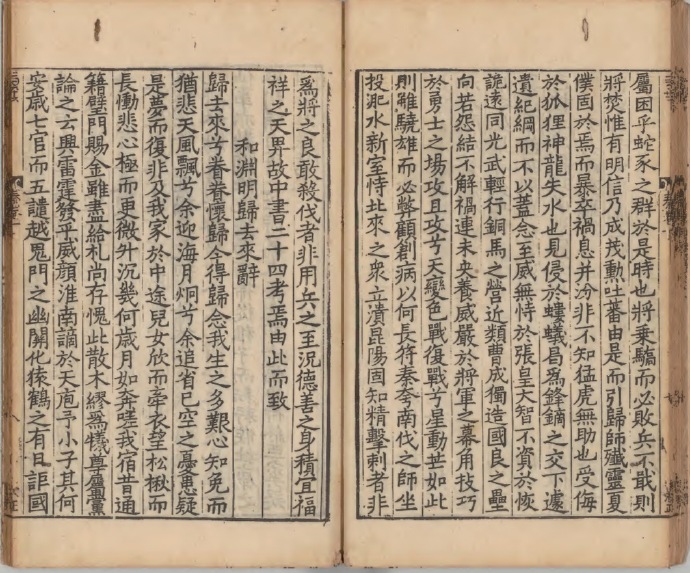 屬困乎蛇豕之群於是時也將乘驕而必敗兵不戢則
將焚惟有明信乃成茂勳吐蕃由是而引歸師殲靈夏
僕固於焉而暴卒禍息并汾非不知猛虎無助也受侮
於狐狸神龍失水也見侵於螻蟻曷爲鋒鏑之交下遽
遺紀綱而不以蓋念至威無恃於張皇大智不資於恢
詭遠同光武輕行銅馬之營近類曹成獨造國良之壘
向若怨結不解禍連未央養威嚴於將軍之幕角技巧
於勇士之場攻且攻兮天變色戰復戰兮星動芒如此
則雖驍雄而必弊顧創病以何長苻秦夸南伐之師坐
投淝水新室恃北來之衆立潰昆陽固知精擊刺者非
爲將之良敢殺伐者非用兵之至況德善之身積宜福
祥之天畀故中書二十四考焉由此而致
和淵明歸去來辭
歸去來兮眷眷懷歸今得歸念我生之多艱心知免而
猶悲天風飄兮余迎海月炯兮余追省已空之憂患疑
是夢而復非及我家於中途兒女欣而牽衣望松楸而
長慟悲心極而更微升沉幾何歲月如奔嗟我宿昔通
籍璧門賜金雖盡給札尚存愧此散木繆爲犧尊屬黨
論之云興雷霆發乎威顏淮南謫於天庖予小子其何
安歲七官而五譴越鬼門之幽關化猿鶴之有日詎國